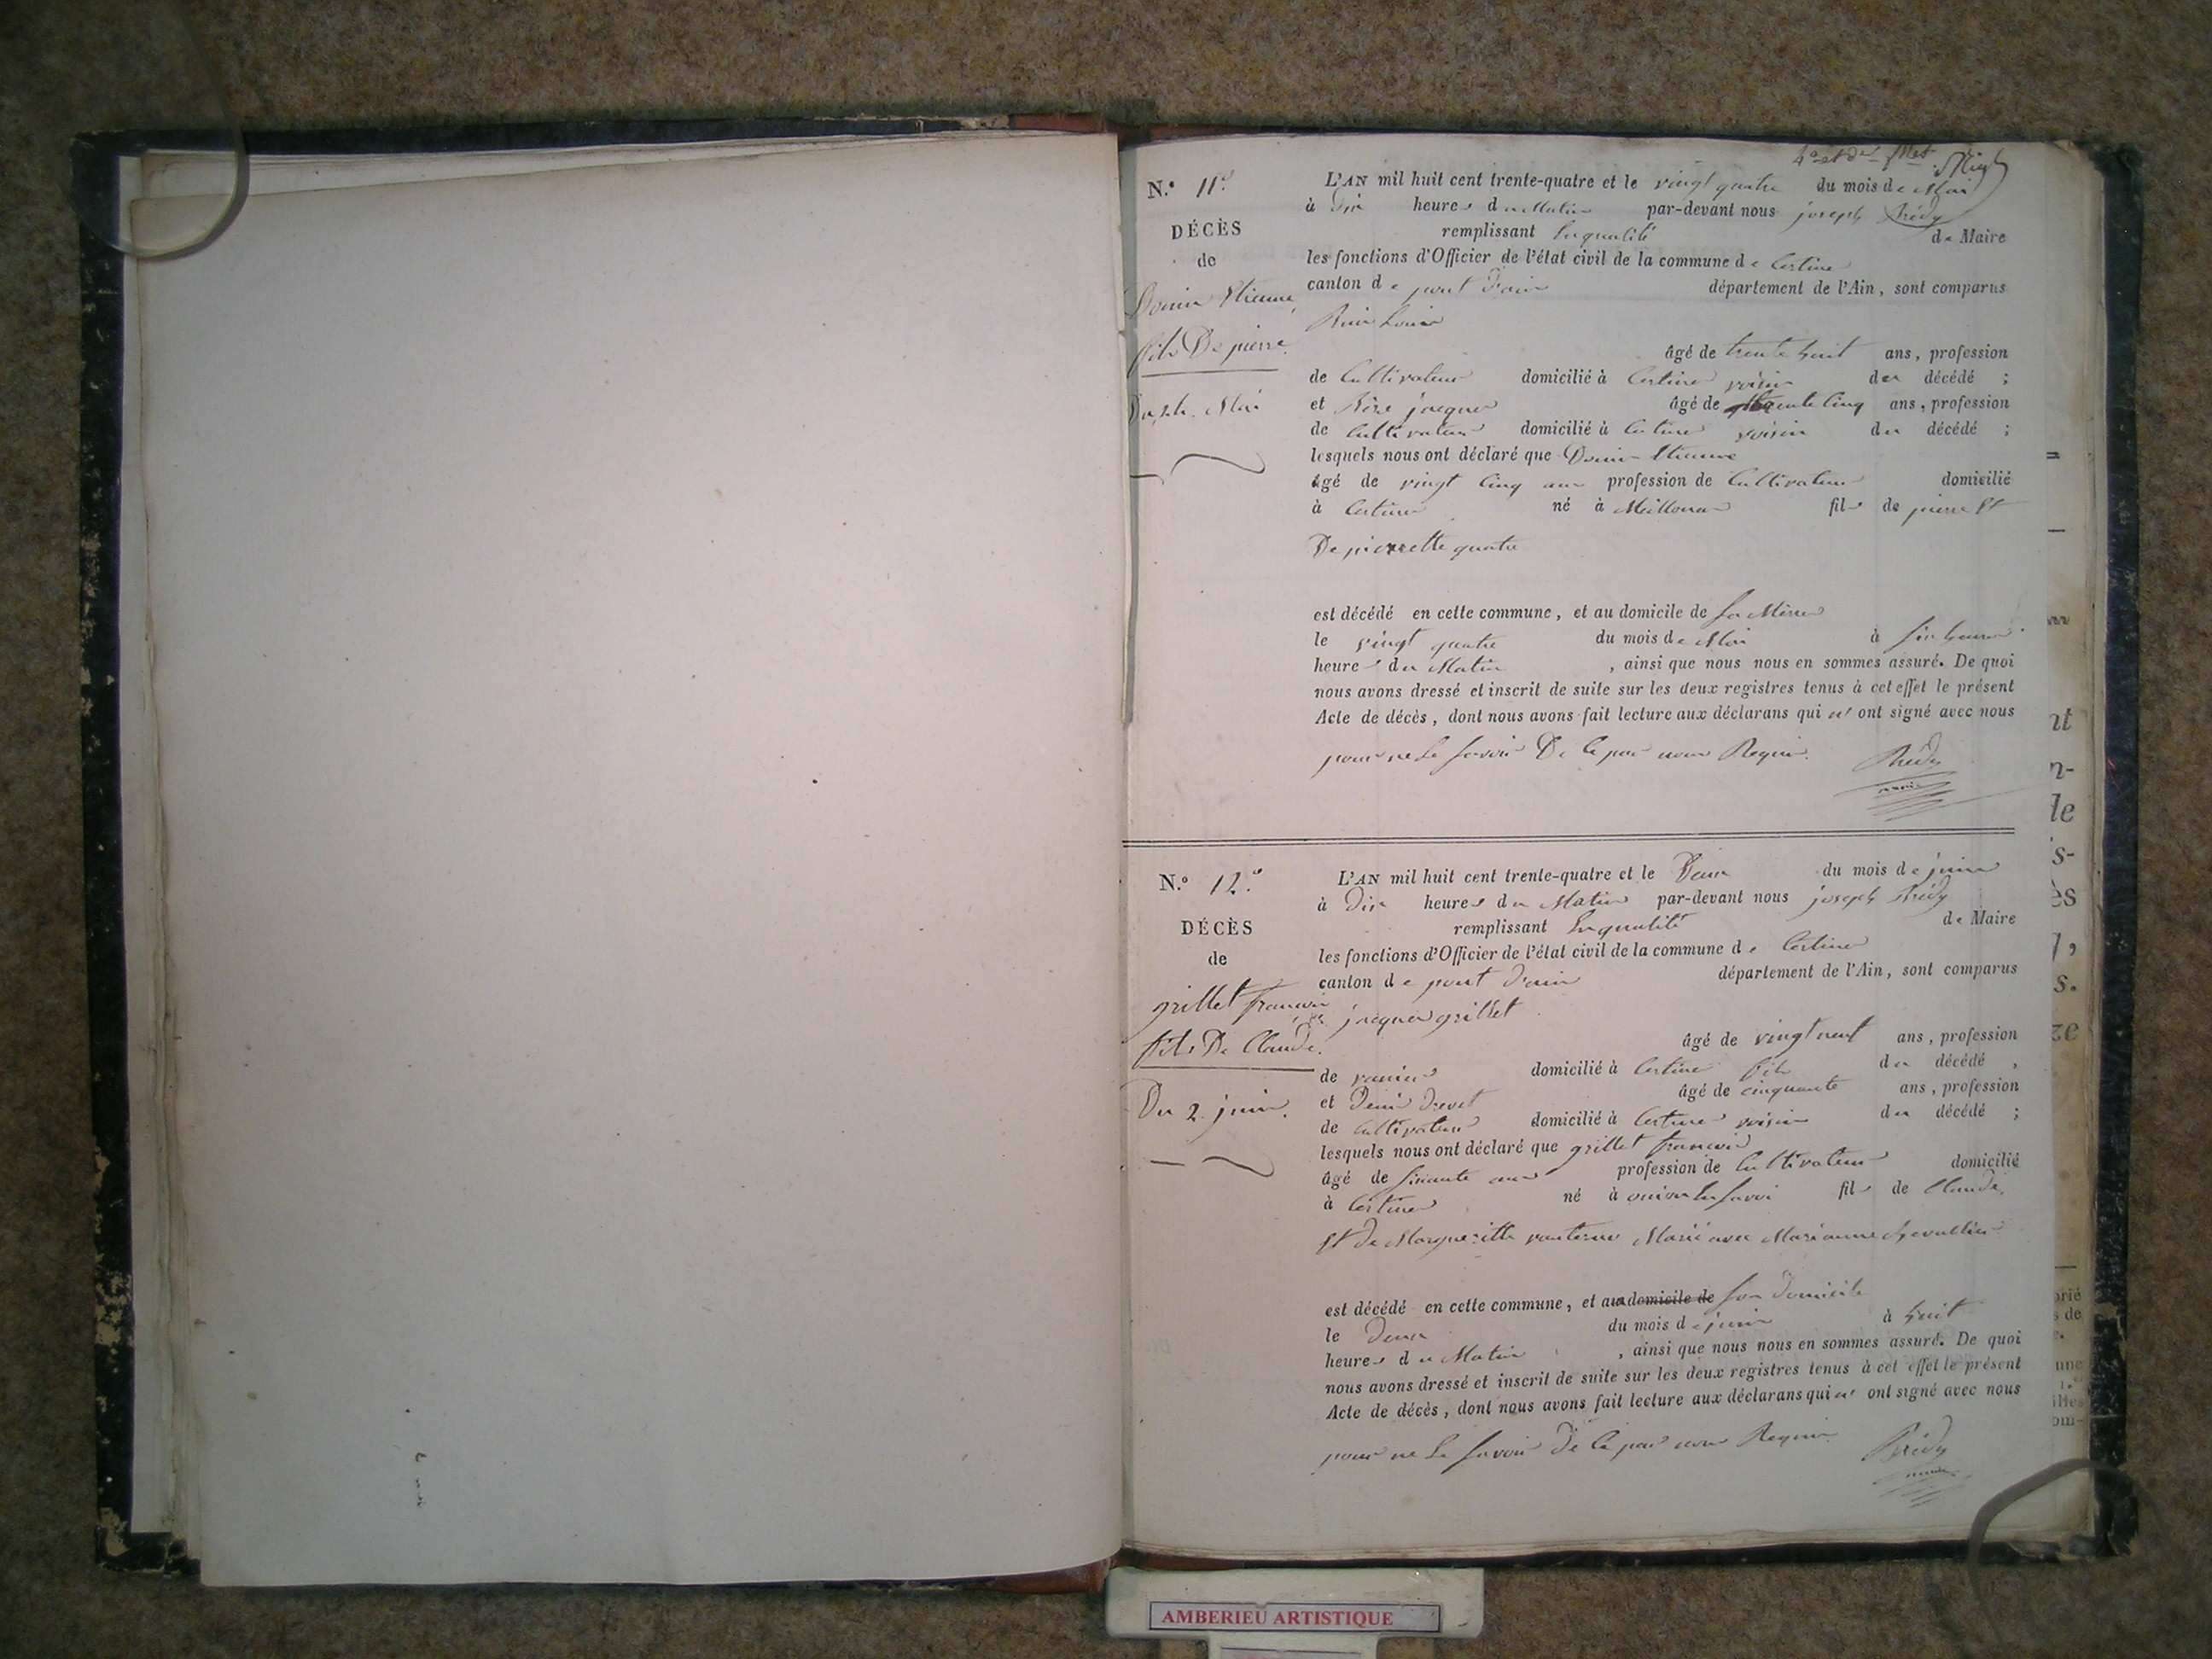 N.° 11.°
DÉCÈS
de
Donin Etienne,
fils De pierre.
Du 24. Mai
L'AN mil huit cent trente-quatre et le vingt quatre du mois de Mai
à Dix heures du Matin par-devant nous joseph
remplissant En qualité de Maire
les fonctions d'Officier de l'état civil de la commune de Certines
canton de pont d'ain département de l'Ain, sont comparus
Louis
âgé de trente huit ans, profession
de Cultivateur domicilié à Certines voisin du décédé ;
et jacques âgé de trente Cinq ans, profession
de Cultivateur domicilié à Certines voisin du décédé ;
lesquels nous ont déclaré que Donin Etienne
âgé de vingt Cinq ans profession de Cultivateur domicilié
à Certines né à fils de pierre Et
De pierrette quatre
est décédé en cette commune, et au domicile de
le vingt quatre du mois de Mai à six heures
heures du Matin, ainsi que nous nous en sommes assuré. De quoi
nous avons dressé et inscrit de suite sur les deux registres tenus à cet effet le présent
Acte de décès, dont nous avons fait lecture aux déclarans qui n' ont signé avec nous
pour ne Le savoir De Ce par nous Requis.
N.° 12.°
DÉCÈS
de
grillet francois
fils De Claude.
Du 2. juin.
L'AN mil huit cent trente-quatre et le Deux du mois de juin
à Dix heures du Matin par-devant nous joseph
remplissant En qualité de Maire
les fonctions d'Officier de l'état civil de la commune de Certines
canton de pont d'ain département de l'Ain, sont comparus
jacques grillet
âgé de vingt neuf ans, profession
de domicilié à Certines fils du décédé ,
et Denis Drevet âgé de cinquante ans, profession
de Cultivateur domicilié à Certines voisin du décédé ;
lesquels nous ont déclaré que grillet francois
âgé de sixante ans profession de Cultivateur domicilié
à Certines né à fils de Claude,
Et de Margueritte Marié avec Marianne
est décédé en cette commune, et au domicile de son Domicile
le Deux du mois de juin à huit
heures du Matin, ainsi que nous nous en sommes assuré. De quoi
nous avons dressé et inscrit de suite sur les deux registres tenus à cet effet le présent
Acte de décès, dont nous avons fait lecture aux déclarans qui n' ont signé avec nous
pour ne Le savoir De Ce par nous Requis
AMBERIEU ARTISTIQUE